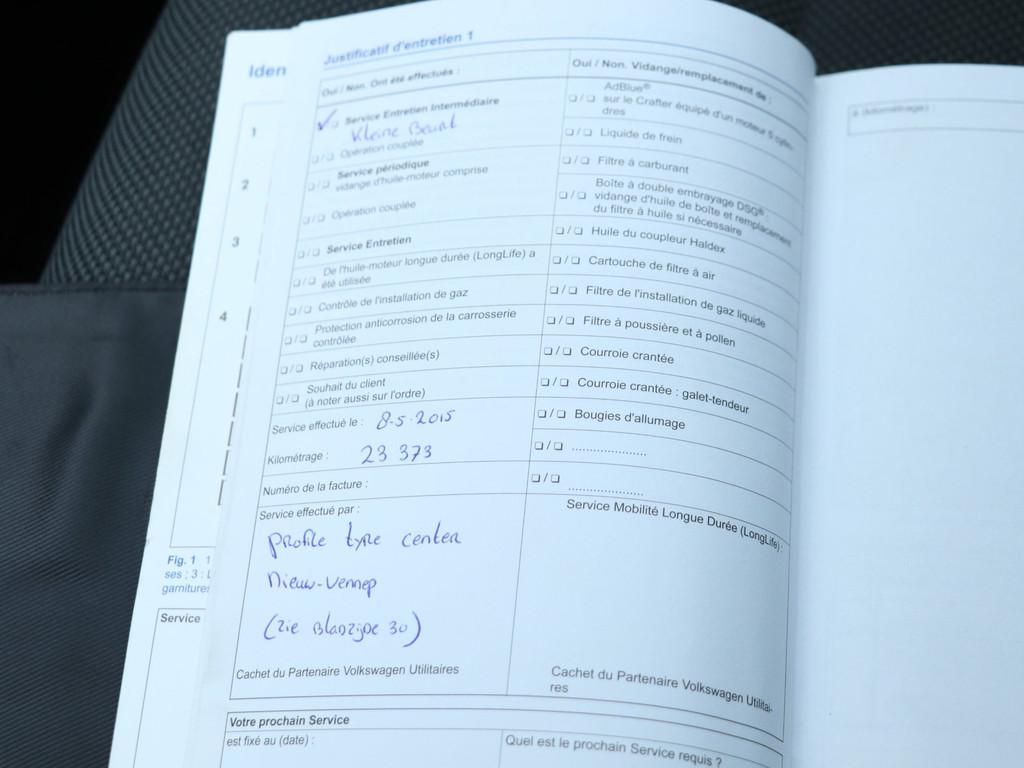 Iden
1
2
3
4
Fig. 1 1
ses ; 3 : L
garnitures
Service
Justificatif d'entretien 1
Oui / Non. Ont été effectués :
❏ Service Entretien Intermédiaire
Kleine Beurt
❏ / ❏ Opération couplée
❏ / ❏ Service périodique
vidange d'huile-moteur comprise
❏ / ❏ Opération couplée
❏ / ❏ Service Entretien
❏ / ❏ De l'huile-moteur longue durée (LongLife) a
été utilisée
❏ / ❏ Contrôle de l'installation de gaz
❏ / ❏ Protection anticorrosion de la carrosserie
contrôlée
❏ / ❏ Réparation(s) conseillée(s)
❏ / ❏ Souhait du client
(à noter aussi sur l'ordre)
Service effectué le : 8-5-2015
Kilométrage : 23 373
Numéro de la facture :
Service effectué par :
Profile tyre center
Nieuw-Vennep
(zie Bladzijde 30)
Cachet du Partenaire Volkswagen Utilitaires
Oui / Non. Vidange/remplacement de :
AdBlue®
❏ / ❏ sur le Crafter équipé d'un moteur 5 cylin-
dres
❏ / ❏ Liquide de frein
❏ / ❏ Filtre à carburant
Boîte à double embrayage DSG® :
❏ / ❏ vidange d'huile de boîte et remplacement
du filtre à huile si nécessaire
❏ / ❏ Huile du coupleur Haldex
❏ / ❏ Cartouche de filtre à air
❏ / ❏ Filtre de l'installation de gaz liquide
❏ / ❏ Filtre à poussière et à pollen
❏ / ❏ Courroie crantée
❏ / ❏ Courroie crantée : galet-tendeur
❏ / ❏ Bougies d'allumage
❏ / ❏ .....................
❏ / ❏ .....................
Service Mobilité Longue Durée (LongLife) :
Cachet du Partenaire Volkswagen Utilitai-
res
Votre prochain Service
est fixé au (date) :
Quel est le prochain Service requis ?
à (kilométrage) :